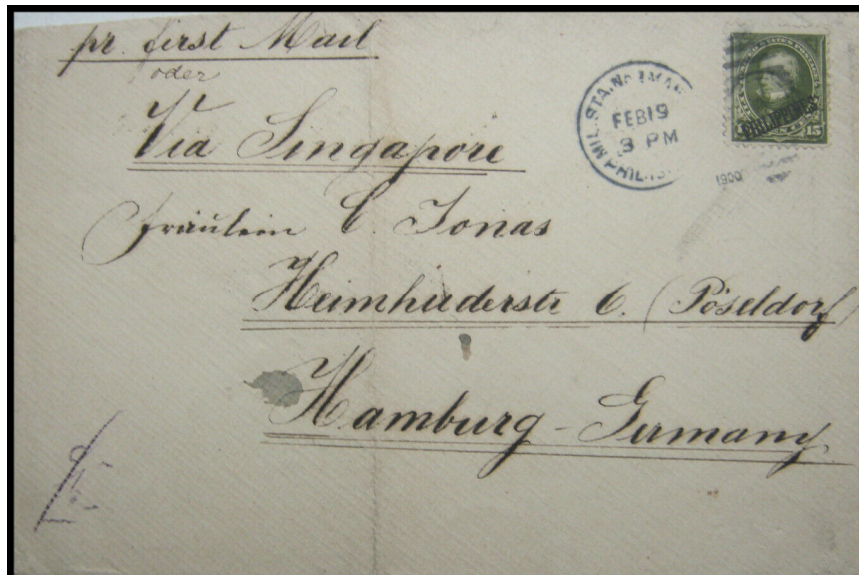 pr. first Mail
oder
Via Singapore
Fräulein C. Jonas
Heimhuderstr 6. (Pöseldorf)
Hamburg - Germany
MIL. STA. No 1
FEB 19
3 PM
PHIL. IS.
1900
PHILIPPINES
15